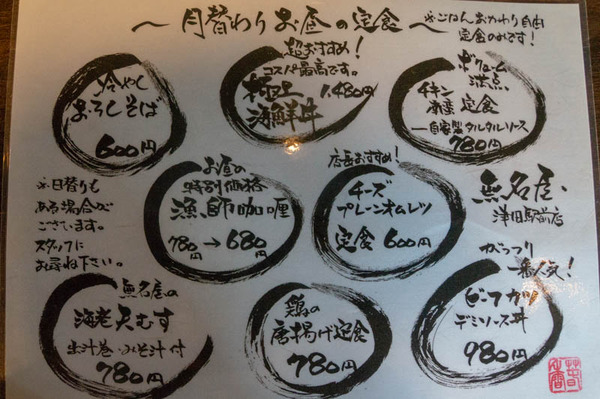 ～月替わりお昼の定食～
※ごはんおかわり自由
定食のみです！
冷やし
おろしそば
600円
超おすすめ！
コスパ最高です。
極上 1,480円
海鮮丼
ボリューム
満点
チキン
南蛮 定食
ー自家製タルタルソース
780円
※日替りも
ある場合が
ございます。
スタッフに
お尋ね下さい。
お昼の
特別価格
漁師咖喱
780円→680円
店長おすすめ！
チーズ
プレーンオムレツ
定食 600円
無名屋
津田駅前店
無名屋の
海老天むす
出汁巻・みそ汁付
780円
鶏の
唐揚げ定食
780円
がっつり
一番人気！
ビーフカツ
デミソース丼
980円